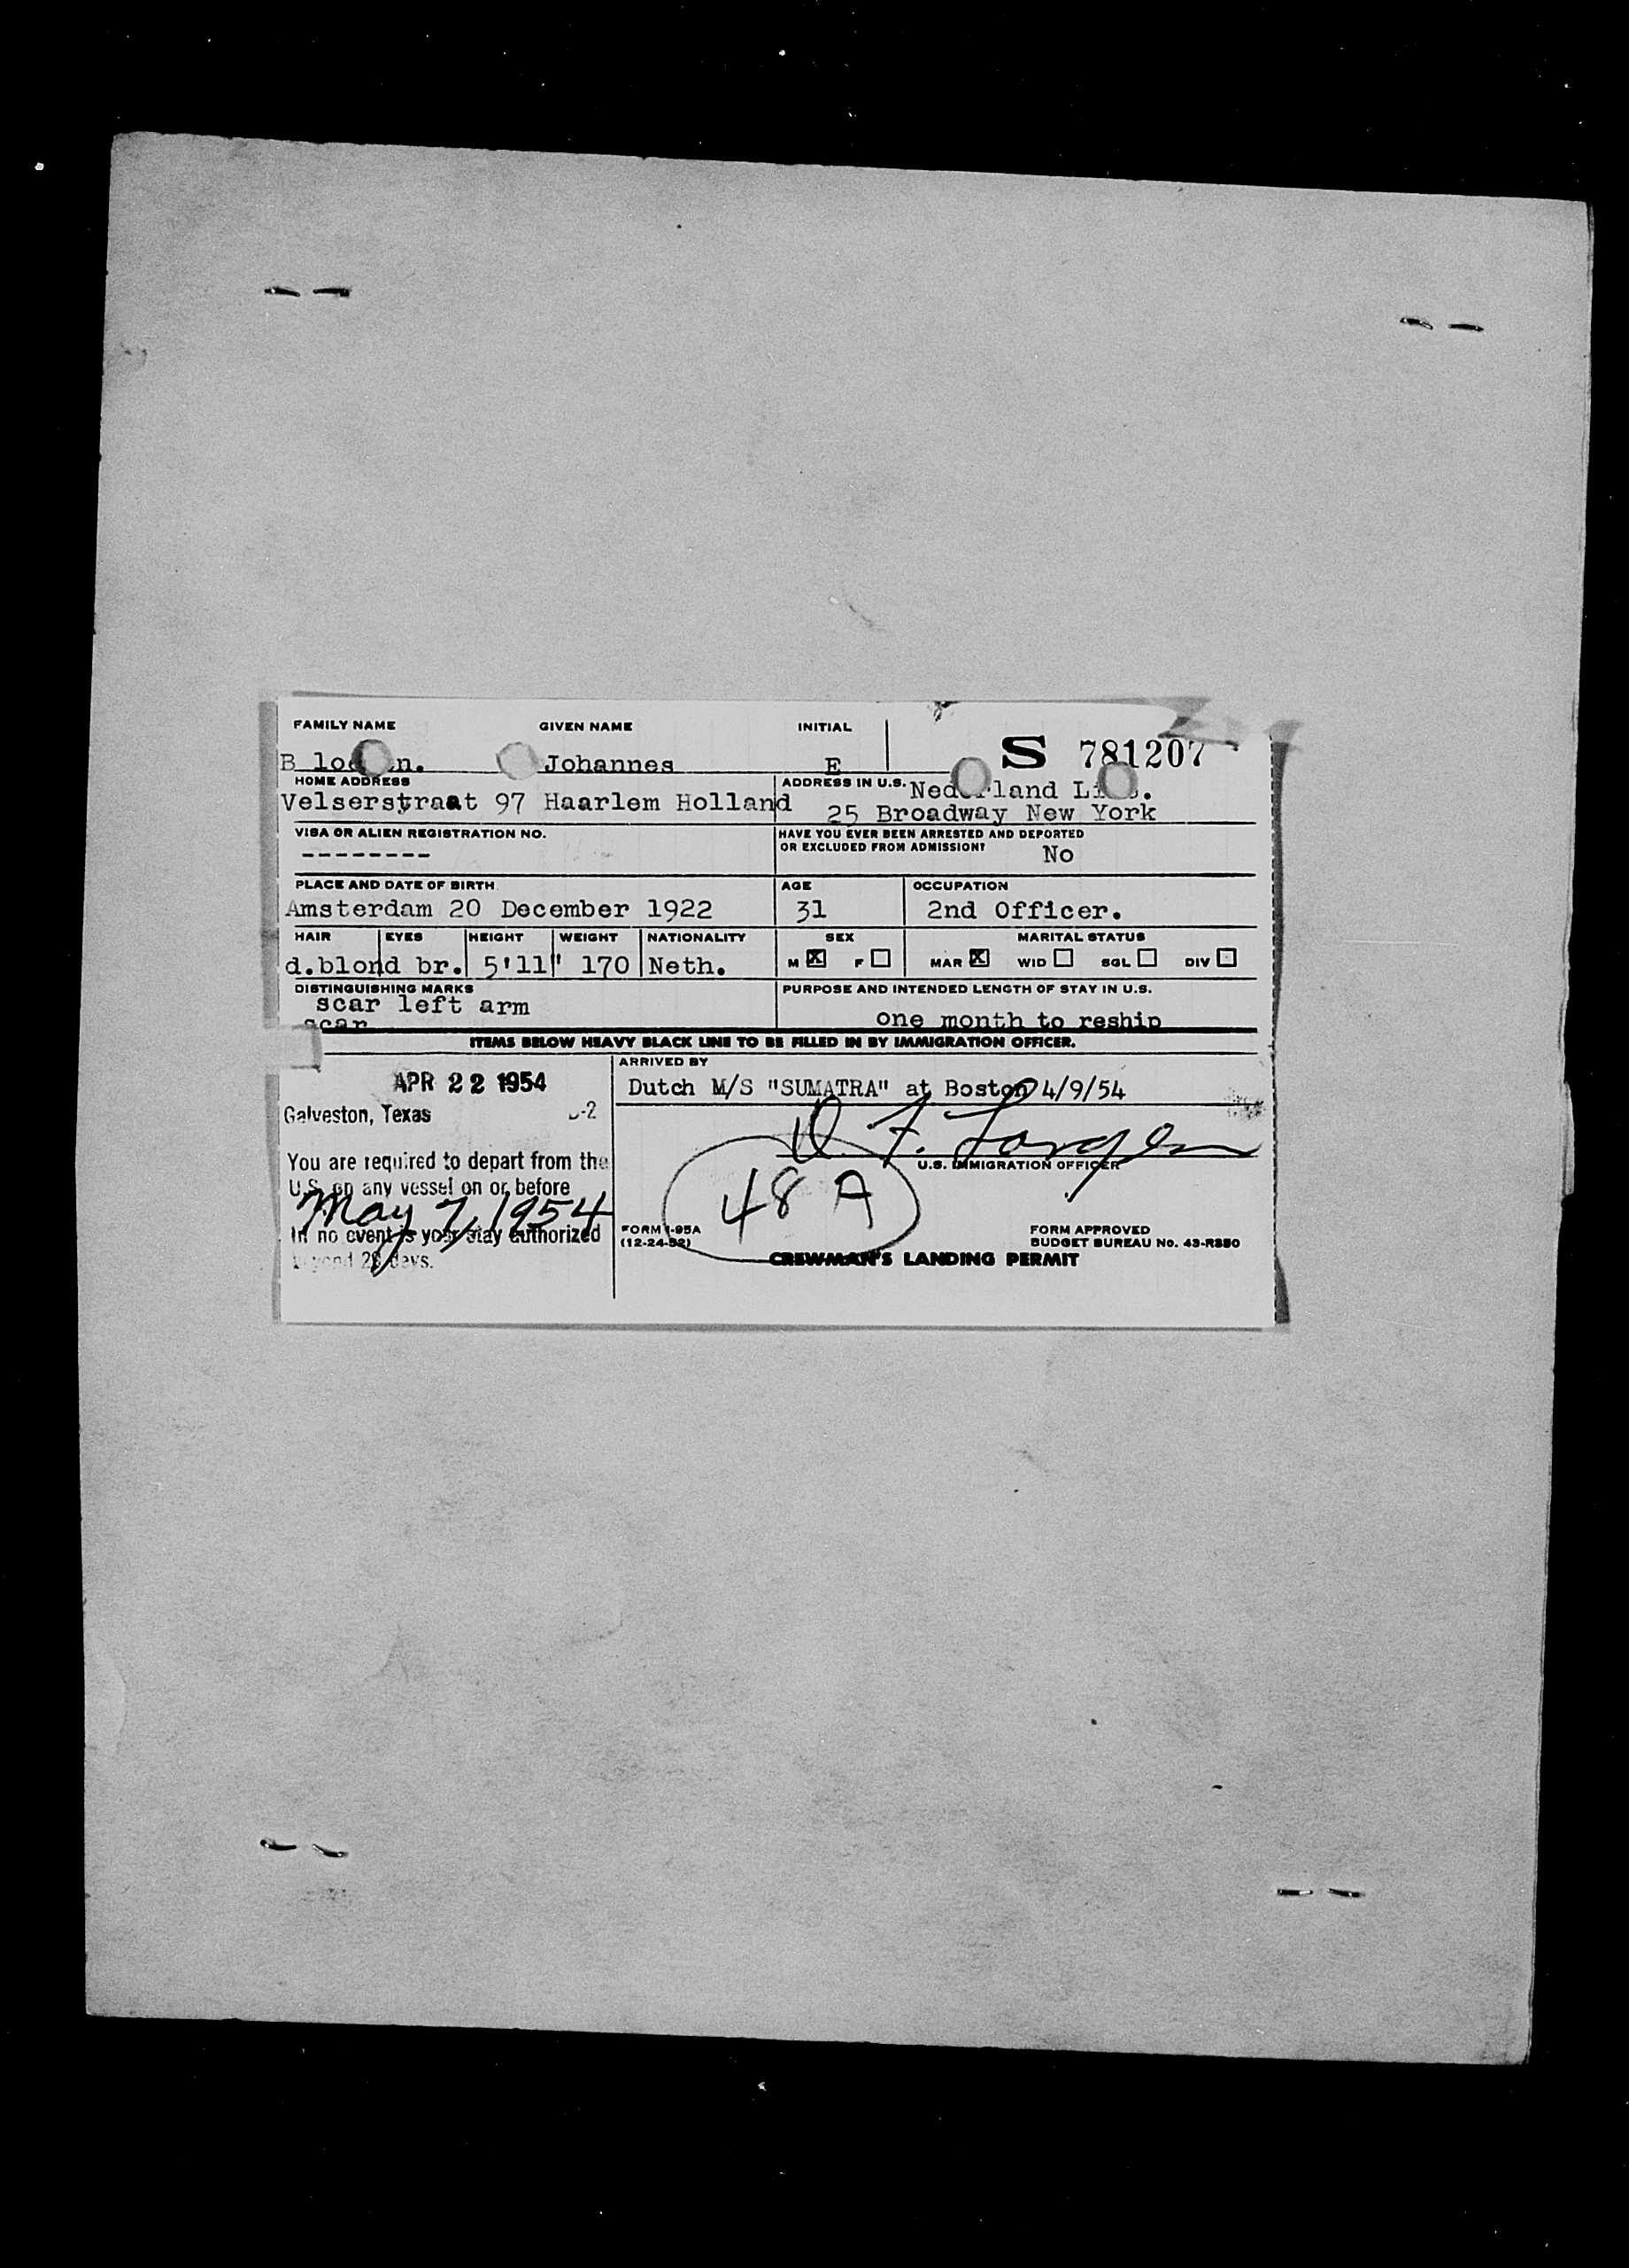 FAMILY NAME GIVEN NAME INITIAL
S 781207
Johannes E
HOME ADDRESS ADDRESS IN U.S.
Velserstraat 97 Haarlem Holland
25 Broadway New York
VISA OR ALIEN REGISTRATION NO. HAVE YOU EVER BEEN ARRESTED AND DEPORTED
OR EXCLUDED FROM ADMISSION?
-------- No
PLACE AND DATE OF BIRTH AGE OCCUPATION
Amsterdam 20 December 1922 31 2nd Officer.
HAIR EYES HEIGHT WEIGHT NATIONALITY SEX MARITAL STATUS
d.blond br. 5'11" 170 Neth. M X F MAR X WID SGL DIV
DISTINGUISHING MARKS PURPOSE AND INTENDED LENGTH OF STAY IN U.S.
scar left arm
scar one month to reship
ITEMS BELOW HEAVY BLACK LINE TO BE FILLED IN BY IMMIGRATION OFFICER.
ARRIVED BY
APR 22 1954 Dutch M/S "SUMATRA" at Boston 4/9/54
Galveston, Texas
You are required to depart from the
U.S. on any vessel on or before
May 7, 1954
In no event is your stay authorized
beyond 29 days.
U.S. IMMIGRATION OFFICER
48 A
FORM I-95A
(12-24-52)
FORM APPROVED
BUDGET BUREAU No. 43-R350
CREWMAN'S LANDING PERMIT